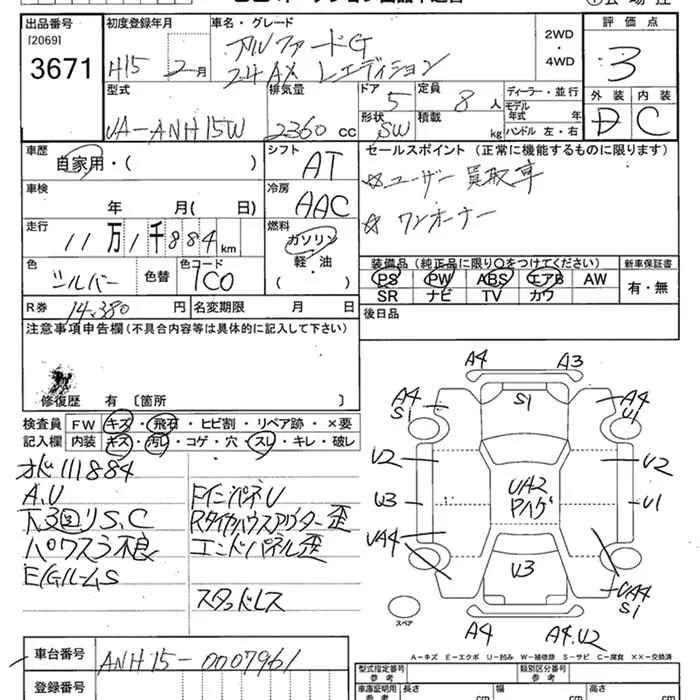 出品番号 初度登録年月 車名・グレード 評価点
[2069] アルファードG 2WD・4WD
3671 H15 2月 24AX Lエディション 3
型式 排気量 ドア 5 定員 8人 ディーラー・並行 外装 内装
UA-ANH15W 2360cc 形状 SW 積載 kg モデル年式 年 ハンドル 左・右 D C
車歴 シフト セールスポイント (正常に機能するものに限ります)
自家用・( ) AT ☆ユーザー買取車
車検 冷房 ☆ワンオーナー
年 月( 日) AAC
走行 燃料
11万1千884km ガソリン 軽・油 ( )
装備品(純正品に限り○をつけてください) 新車保証書
色 シルバー 色替 色コード 1C0 PS PW ABS エアB AW 有・無
SR ナビ TV カワ
R券 14,380円 名変期限 月 日 後日品
注意事項申告欄(不具合内容等は具体的に記入して下さい)
修復歴 有〔箇所 〕
検査員 FW キズ・飛石・ヒビ割・リペア跡・×要
記入欄 内装 キズ・汚レ・コゲ・穴・スレ・キレ・破レ
メ111884
A.U FインパネU
下回りS,C Rタイヤハウスアウター歪
パワスラ不良 エンドパネル歪
E/GルームS
スタッドレス
A4 A3
A4 S1 S1 A4 U1
U2 U2
U3 UA2 ハゲ U1
UA4 U3 UA4 S1
スペア A4 A4.U2
A-キズ E-エクボ U-凹み W-補修跡 S-サビ C-腐食 ××-交換済
車台番号 ANH15-0007961
登録番号
型式指定番号 参考 類別区分番号 参考
車庫証明用 参考 長さ cm 幅 cm 高さ cm